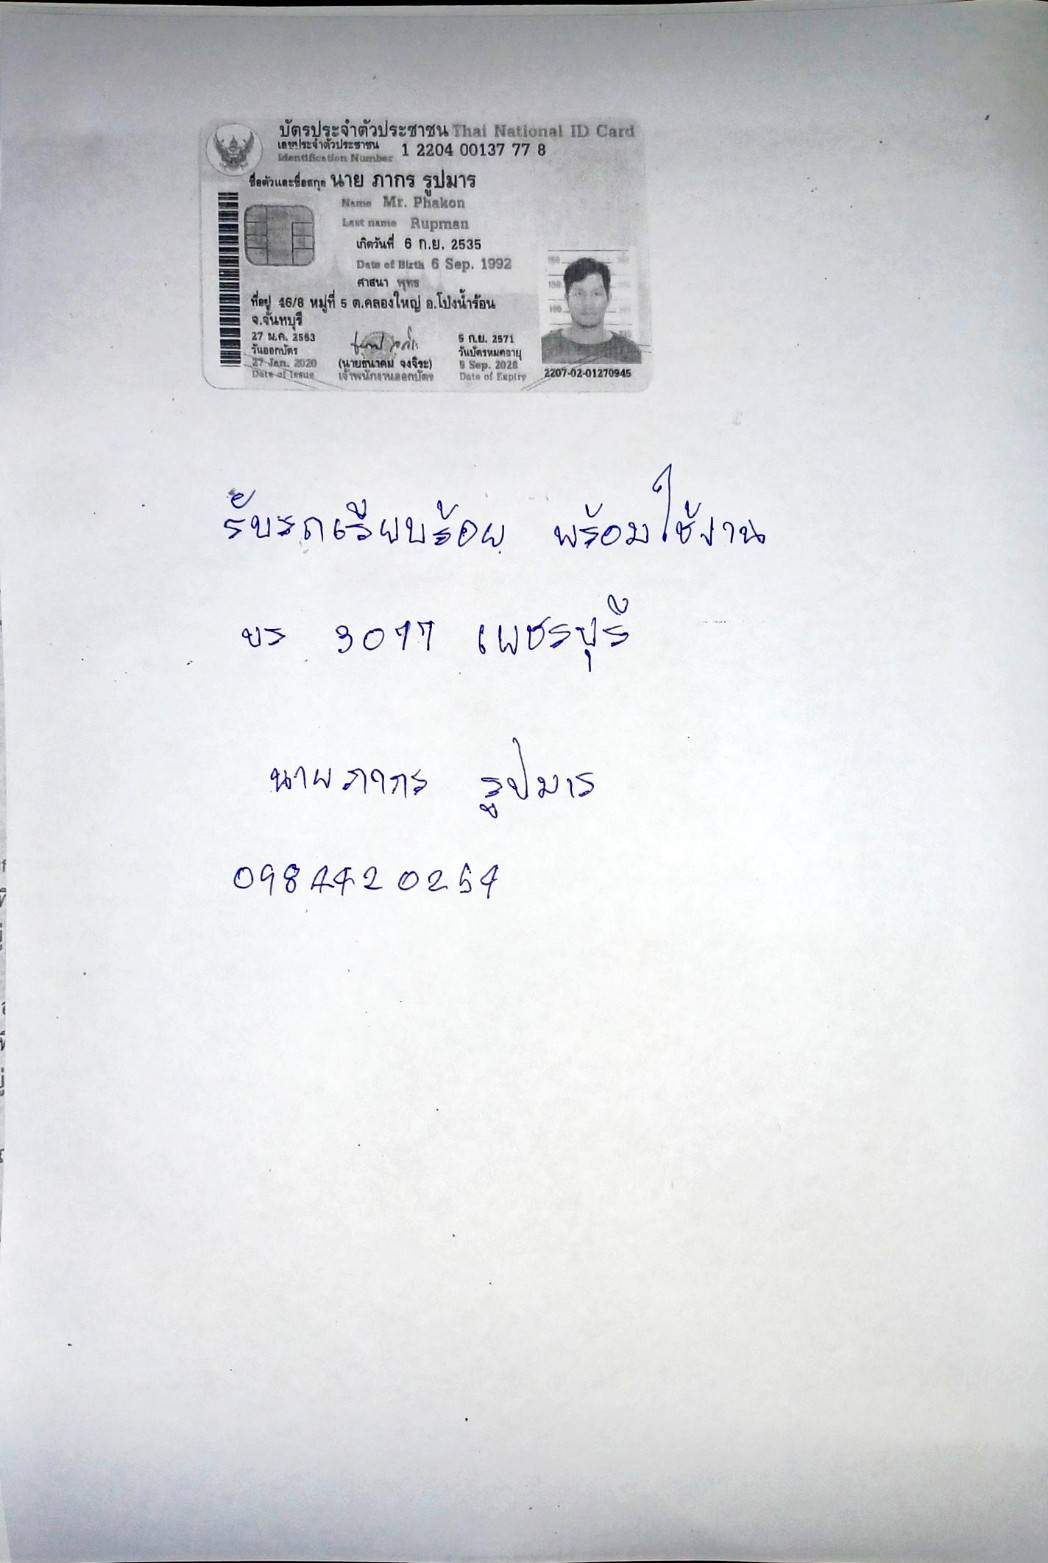 บัตรประจำตัวประชาชน Thai National ID Card
เลขประจำตัวประชาชน 1 2204 00137 77 8
Identification Number
ชื่อตัวและชื่อสกุล นาย ภากร รูปมาร
Name Mr. Phakon
Last name Rupman
เกิดวันที่ 6 ก.ย. 2535
Date of Birth 6 Sep. 1992
ศาสนา พุทธ
ที่อยู่ 46/8 หมู่ที่ 5 ต.คลองใหญ่ อ.โป่งน้ำร้อน
จ.จันทบุรี
27 ม.ค. 2563
วันออกบัตร
27 Jan. 2020
Date of Issue
(นายธนาคม จงจิระ)
เจ้าพนักงานออกบัตร
5 ก.ย. 2571
วันบัตรหมดอายุ
5 Sep. 2028
Date of Expiry
2207-02-01270945
รับรถเรียบร้อย พร้อมใช้งาน
บร 3077 เพชรบุรี
นายภากร รูปมาร
0984420254